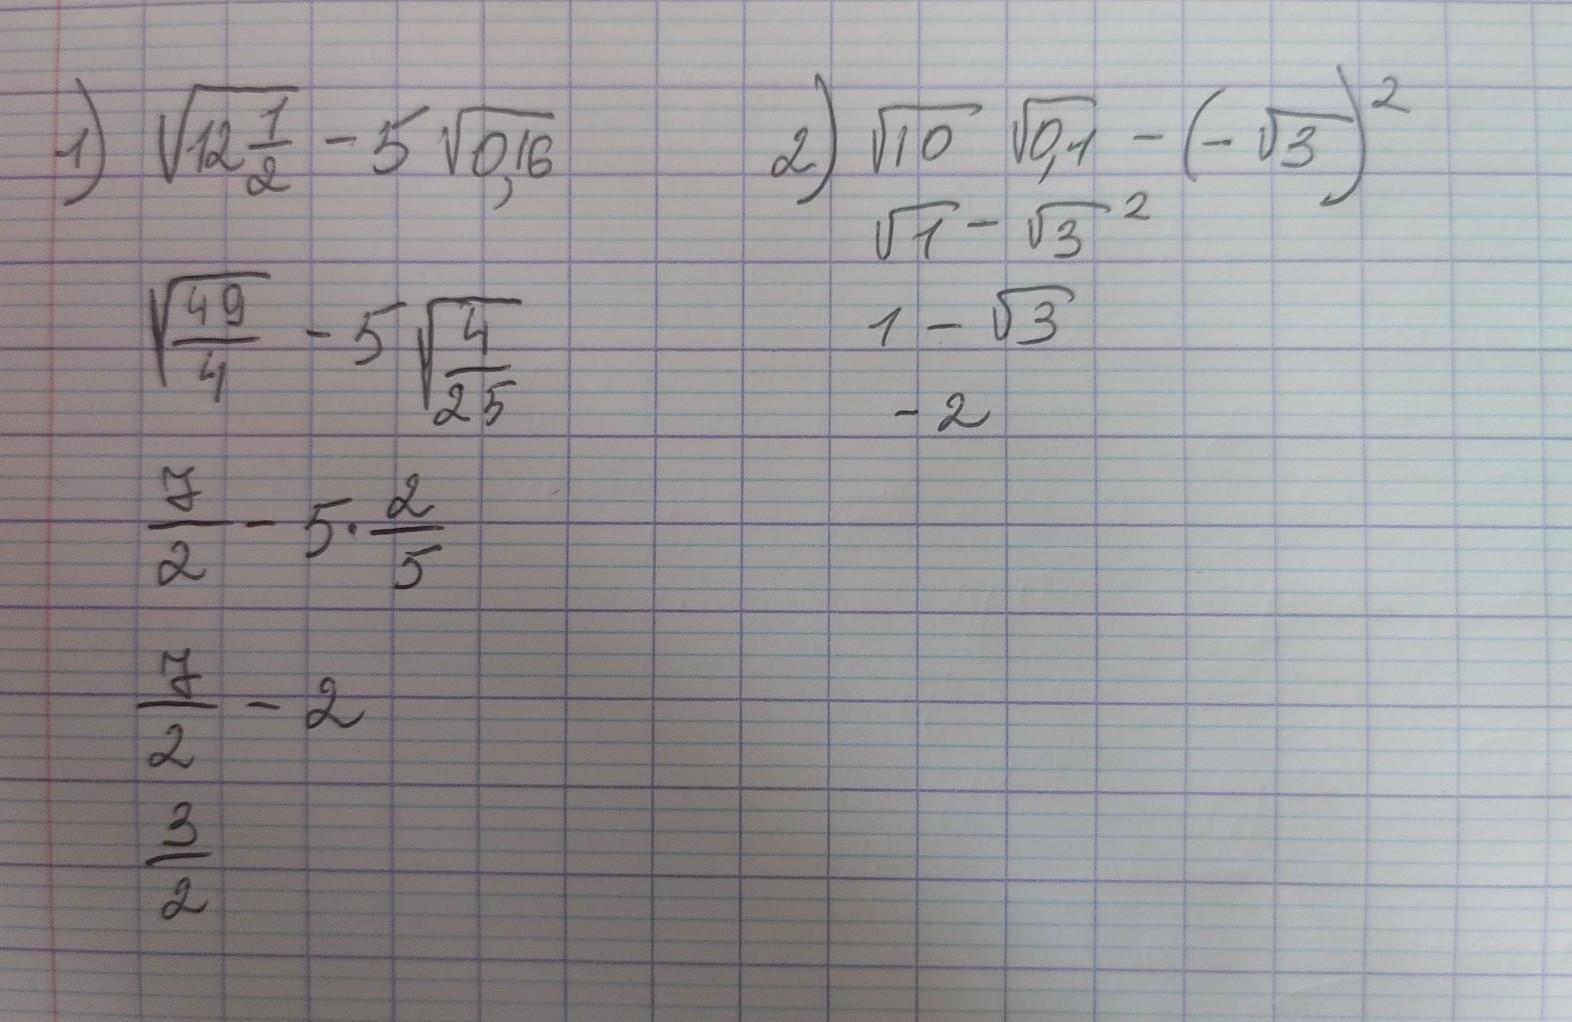 1) √(12 1/2) - 5 √(0,16)
√(49/4) - 5 √(4/25)
7/2 - 5 · 2/5
7/2 - 2
3/2
2) √10 √0,1 - (-√3)²
√1 - √3²
1 - √3
- 2